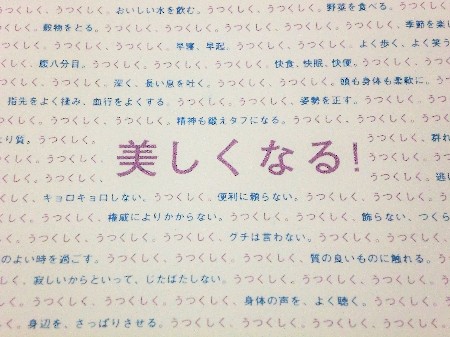 うつくしく、うつくしく、おいしい水を飲む。うつくしく、うつくしく、野菜を食べる。うつくしく、
うつくしく、穀物をとる。うつくしく、うつくしく、うつくしく、うつくしく、うつくしく、季節を楽し
うつくしく、うつくしく、うつくしく、早寝、早起。うつくしく、うつくしく、よく歩く、よく笑う
うつくしく、腹八分目。うつくしく、うつくしく、うつくしく、快食、快眠、快便。うつくしく、
うつくしく、うつくしく、深く、長い息を吐く。うつくしく、うつくしく、頭も身体も柔軟に。
指先をよく揉み、血行をよくする。うつくしく、うつくしく、うつくしく、姿勢を正す。うつくしく、
うつくしく、うつくしく、うつくしく、精神も鍛えタフになる。うつくしく、うつくしく、うつくしく、
より質。うつくしく、
うつくしく、群れ
美しくなる!
うつくしく、うつくしく、
うつくしく、キョロキョロしない。うつくしく、うつくしく、便利に頼らない。うつくしく、うつくしく、
うつくしく、うつくしく、権威によりかからない。うつくしく、うつくしく、うつくしく、飾らない、つくら
うつくしく、うつくしく、うつくしく、うつくしく、グチは言わない。うつくしく、うつくしく、
のよい時を過ごす。うつくしく、うつくしく、うつくしく、うつくしく、質の良いものに触れる。うつくしく、
うつくしく、寂しいからといって、じたばたしない。うつくしく、うつくしく、うつくしく、うつくしく、
うつくしく、うつくしく、うつくしく、うつくしく、うつくしく、身体の声を、よく聴く。うつくしく、
うつくしく、身辺を、さっぱりさせる。うつくしく、うつくしく、うつくしく、うつくしく、うつくしく、